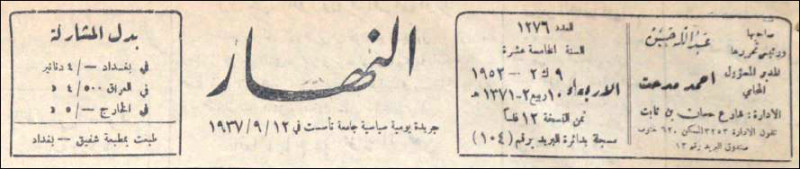 صاحبها
ورئيس تحريرها
المدير المسؤول
المحامي احمد مدحت
الادارة : شارع حسان بن ثابت
تلفون الادارة ٣٢٥٣ السكن ٦٢٠
صندوق البريد رقم ١٣
العدد ١٢٧٦
السنة الخامسة عشرة
٩ ك ٢ - ١٩٥٢
الاربعاء ١٠ ربيع ٢ - ١٣٧١ هـ
ثمن النسخة ١٢ فلساً
مسجلة بدائرة البريد برقم (١٠٤)
النهار
جريدة يومية سياسية جامعة تأسست في ١٢ / ٩ / ١٩٣٧
بدل المشاركة
في بغداد -/ ٤ دنانير
في العراق ٥٠٠/ ٤ د
في الخارج -/ ٥ د
طبعت بمطبعة شفيق - بغداد